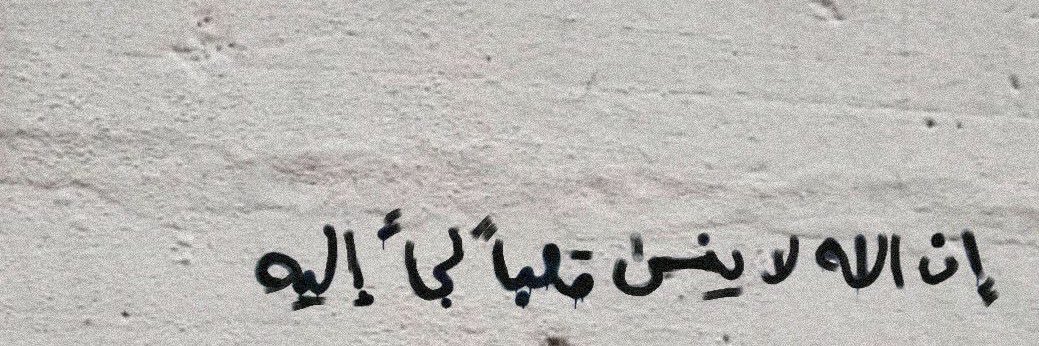 إن الله لا ينسى قلباً لجأ إليه